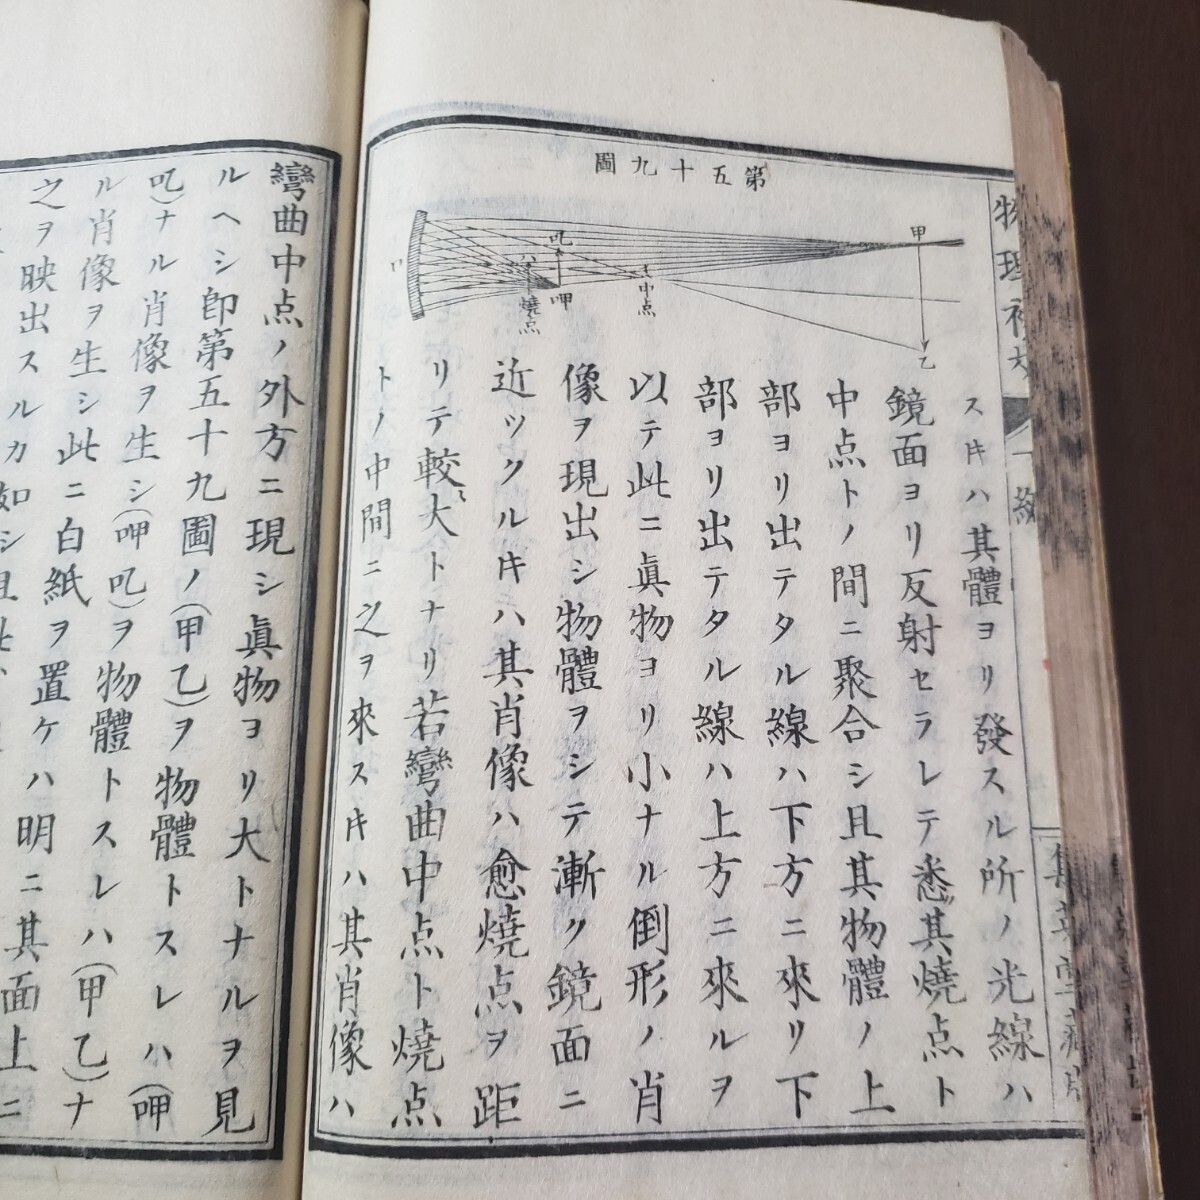 第五十九圖
甲
乙
中点
吃
呷
燒点
ハ
スキハ其體ヨリ發スル所ノ光線ハ
鏡面ヨリ反射セラレテ悉其燒点ト
中点トノ間ニ聚合シ且其物體ノ上
部ヨリ出テタル線ハ下方ニ來リ下
部ヨリ出テタル線ハ上方ニ來ルヲ
以テ此ニ眞物ヨリ小ナル倒形ノ肖
像ヲ現出シ物體ヲシテ漸ク鏡面ニ
近ックル𪜈ハ其肖像ハ愈燒点ヲ距
リテ較大トナリ若彎曲中点ト燒点
トノ中間ニ之ヲ來ス𪜈ハ其肖像ハ
彎曲中点ノ外方ニ現シ眞物ヨリ大トナルヲ見
ルヘシ卽第五十九圖ノ(甲乙)ヲ物體トスレハ(呷
吃)ナル肖像ヲ生シ(呷吃)ヲ物體トスレハ(甲乙)ナ
ル肖像ヲ生シ此ニ白紙ヲ置ケハ明ニ其面上ニ
之ヲ映出スルカ如シ
物理